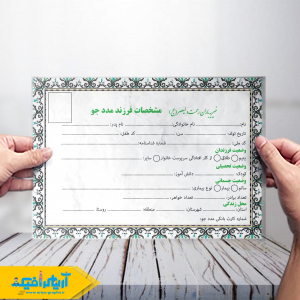 مشخصات فرزند مدد جو
نام: نام خانوادگی: نام پدر:
تاریخ تولد: سن: کد طفل:
کد ملی: شماره شناسنامه:
وضعیت فرزندان
یتیم طلاق از کار افتادگی سرپرست خانوار سایر:
وضعیت تحصیلی
کودک دانش آموز:
وضعیت جسمانی
سالم بیمار نوع بیماری:
تعداد برادر: تعداد خواهر:
محل زندگی
شهرستان: منطقه: روستا:
شماره کارت بانکی مدد جو: